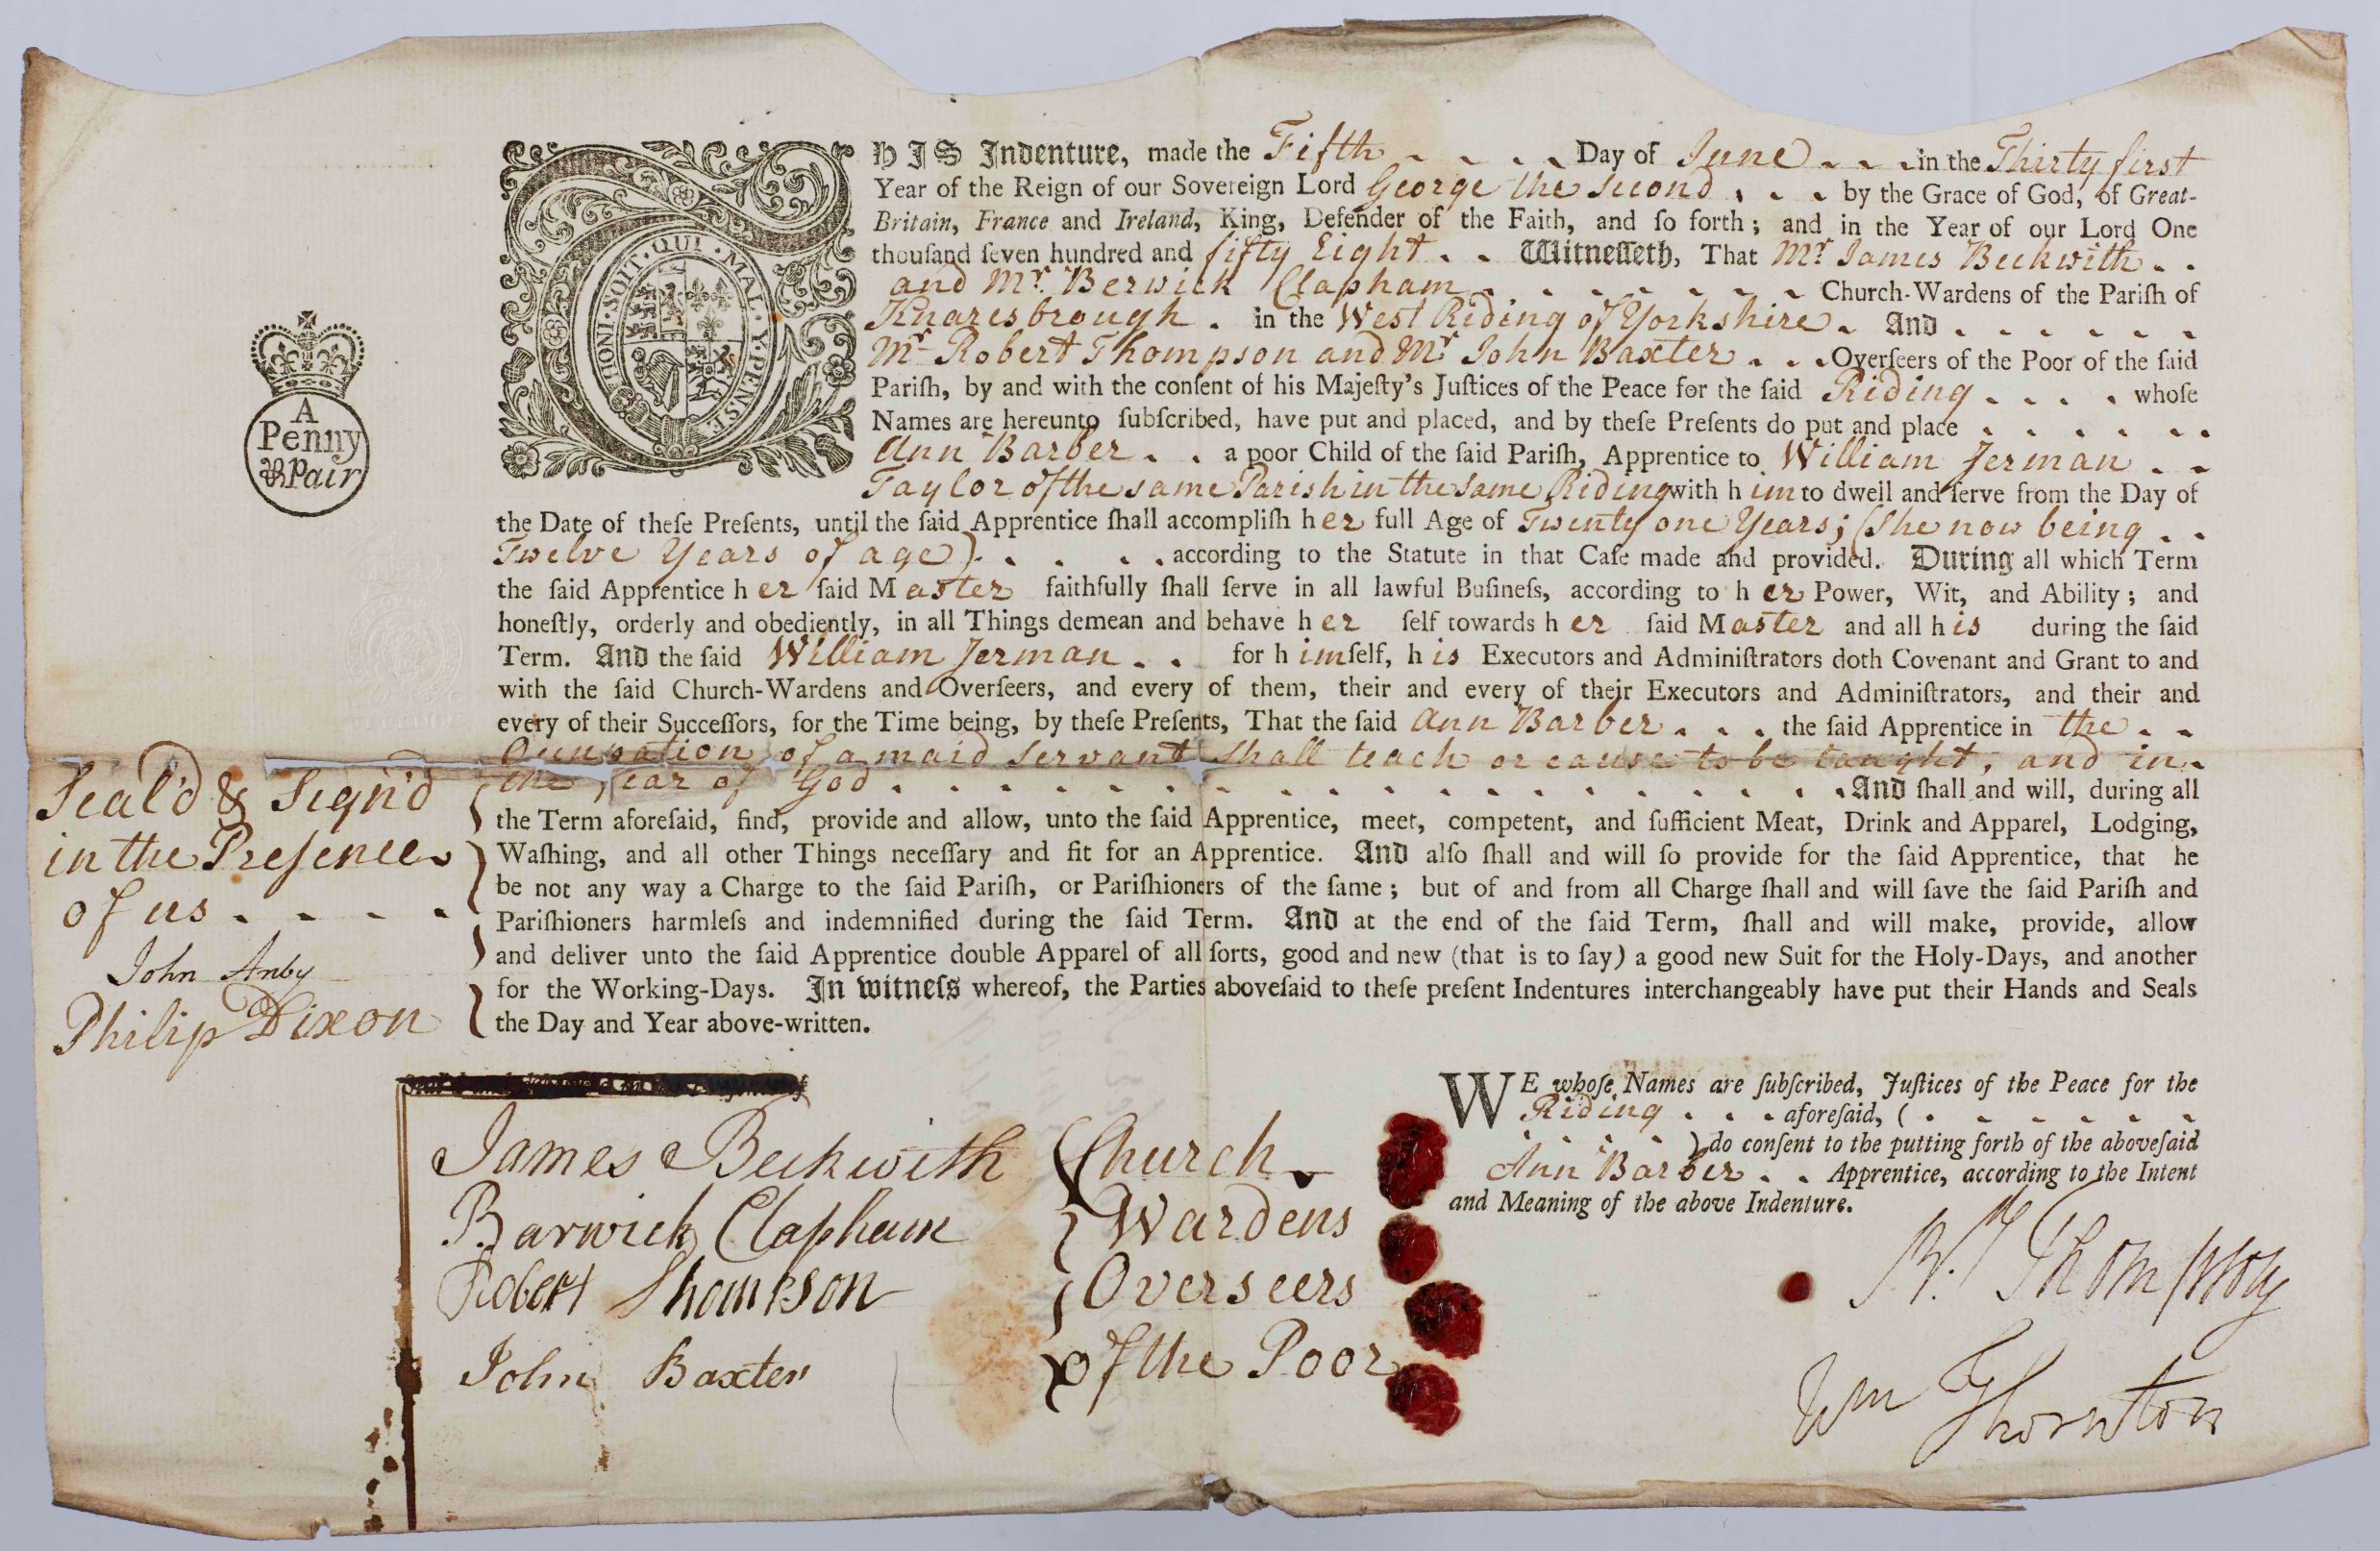 A
Penny
Pair
HONI · SOIT · QUI · MAL · Y · PENSE
HIS Indenture, made the Fifth . . . . Day of June . . . in the Thirty first
Year of the Reign of our Sovereign Lord George the Second . . . by the Grace of God, of Great-
Britain, France and Ireland, King, Defender of the Faith, and ſo forth; and in the Year of our Lord One
thouſand ſeven hundred and fifty Eight . . Witneſſeth, That Mr James Beckwith . .
and Mr. Berwick Clapham . . . . . . . Church-Wardens of the Pariſh of
Knaresbrough . in the West Riding of Yorkshire . And . . . . . .
Mr Robert Thompson and Mr John Baxter . . . Overſeers of the Poor of the ſaid
Pariſh, by and with the conſent of his Majeſty's Juſtices of the Peace for the ſaid Riding . . . . whoſe
Names are hereunto ſubſcribed, have put and placed, and by theſe Preſents do put and place . . . . . .
Ann Barber . . a poor Child of the ſaid Pariſh, Apprentice to William Jerman . .
Taylor of the same Parish in the Same Riding with h im to dwell and ſerve from the Day of
the Date of theſe Preſents, until the ſaid Apprentice ſhall accompliſh h er full Age of Twenty one Years; (She now being . .
Twelve Years of age) . . . . . according to the Statute in that Caſe made and provided. During all which Term
the ſaid Apprentice h er ſaid M aster faithfully ſhall ſerve in all lawful Buſineſs, according to h er Power, Wit, and Ability; and
honeſtly, orderly and obediently, in all Things demean and behave h er ſelf towards h er ſaid M aster and all h is during the ſaid
Term. And the ſaid William Jerman . . for h imſelf, h is Executors and Adminiſtrators doth Covenant and Grant to and
with the ſaid Church-Wardens and Overſeers, and every of them, their and every of their Executors and Adminiſtrators, and their and
every of their Succeſſors, for the Time being, by theſe Preſents, That the ſaid Ann Barber . . . the ſaid Apprentice in the . .
Occupation of a maid Servant Shall teach or cause to be taught, and in .
the fear of God . . . . . . . . . . . . . . . . . And ſhall and will, during all
the Term aforeſaid, find, provide and allow, unto the ſaid Apprentice, meet, competent, and ſufficient Meat, Drink and Apparel, Lodging,
Waſhing, and all other Things neceſſary and fit for an Apprentice. And alſo ſhall and will ſo provide for the ſaid Apprentice, that he
be not any way a Charge to the ſaid Pariſh, or Pariſhioners of the ſame; but of and from all Charge ſhall and will ſave the ſaid Pariſh and
Pariſhioners harmleſs and indemnified during the ſaid Term. And at the end of the ſaid Term, ſhall and will make, provide, allow
and deliver unto the ſaid Apprentice double Apparel of all ſorts, good and new (that is to ſay) a good new Suit for the Holy-Days, and another
for the Working-Days. In witneſs whereof, the Parties aboveſaid to theſe preſent Indentures interchangeably have put their Hands and Seals
the Day and Year above-written.
Seal'd & Sign'd
in the Preſence
of us . . . .
John Anby
Philip Dixon
James Beckwith
Barwick Clapham
Robert Thompson
John Baxter
Church
Wardens
Overseers
of the Poor
WE whoſe Names are ſubſcribed, Juſtices of the Peace for the
Riding . . . aforeſaid, ( . . . . . .
. . . . ) do conſent to the putting forth of the aboveſaid
Ann Barber . . Apprentice, according to the Intent
and Meaning of the above Indenture.
Thompson
Wm Thornton